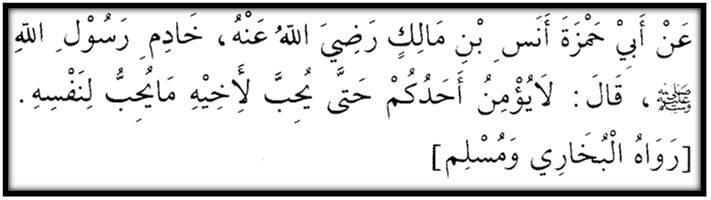 عَنْ أَبِيْ حَمْزَةَ أَنَس ِ بْنِ مَالِكٍ رَضِيَ اللهُ عَنْهُ، خَادِمِ رَسُوْل ِ اللهِ
ﷺ، قَالَ: لَايُؤْمِنُ أَحَدُكُمْ حَتَّى يُحِبَّ لِأَخِيْهِ مَايُحِبُّ لِنَفْسِهِ.
[رَوَاهُ الْبُخَارِي وَمُسْلِم]